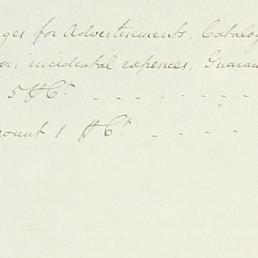 ges for Advertisements, Catalog
incidental expences, Guaran
5 ⅌ Ct. - - - - - - -
ount 1 ⅌ Ct. - - -